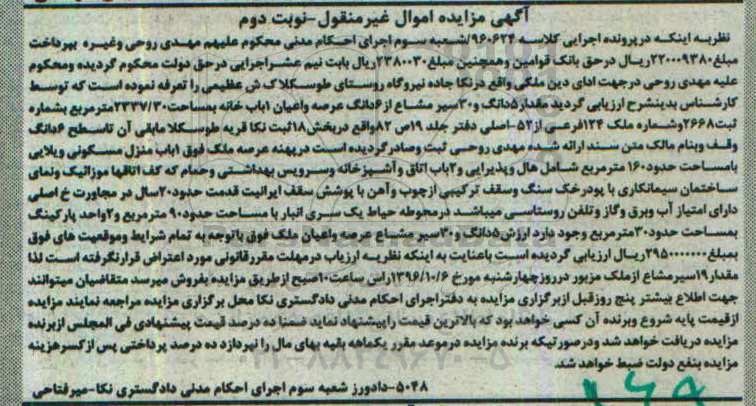 آگهی مزایده اموال غیرمنقول-نوبت دوم
نظریه اینکه درپرونده اجرایی کلاسه ۹۶۰۶۲۴/شعبه سوم اجرای احکام مدنی محکوم علیهم مهدی روحی وغیره بهرداخت
مبلغ۲۲۰۰۰۹۳۸۰ریال درحق بانک قوامین وهمچنین مبلغ۲۳۸۰۰۳۰ریال بابت نیم عشراجرایی درحق دولت محکوم گردیده ومحکوم
علیه مهدی روحی درجهت ادای دین ملکی واقع درنکا جاده نیروگاه روستای طوسکلاک ش عظیمی را تعرفه نموده است که توسط
کارشناس بدینشرح ارزیابی گردید مقدار۵دانگ و۳۰سیر مشاع از۶دانگ عرصه واعیان ۱باب خانه بمساحت۲۳۳۷/۳۰مترمربع بشماره
ثبت۲۶۶۸وشماره ملک ۱۲۴فرعی از۵۲-اصلی دفتر جلد ۱۹ص ۸۲واقع دربخش۱۸ثبت نکا قریه طوسکلا مابقی آن تاسطح ۶دانگ
وقف وبنام مالک متن سند ارائه شده مهدی روحی ثبت وصادرگردیده است درپهنه عرصه ملک فوق ۱باب منزل مسکونی ویلایی
بامساحت حدود۱۶۰ مترمربع شامل هال وپذیرایی و۲باب اتاق وآشپزخانه وسرویس بهداشتی وحمام که کف اتاقها موزائیک ونمای
ساختمان سیمانکاری با پودرخک سنگ وسقف ترکیبی ازچوب وآهن با پوشش سقف ایرانیت قدمت حدود۲۰سال در مجاورت خ اصلی
دارای امتیاز آب وبرق وگاز وتلفن روستاسی میباشد درمحوطه حیاط یک سری انبار با مساحت حدود۹۰ مترمربع و۲واحد پارکینگ
بمساحت حدود۳۰مترمربع وجود دارد ارزش۵دانگ و۳۰سیر مشاع عرصه واعیان ملک فوق باتوجه به تمام شرایط وموقعیت های فوق
بمبلغ۲۹۵۰۰۰۰۰۰۰ریال ارزیابی گردیده است باعنایت به اینکه نظریه ارزیاب درمهلت مقررقانونی مورد اعتراض قرارنگرفته است لذا
مقدار۱۹سیرمشاع ازملک مزبور درروزچهارشنبه مورخ ۱۳۹۶/۱۰/۶راس ساعت۱۰صبح ازطریق مزایده بفروش میرسد متقاضیان میتوانند
جهت اطلاع بیشتر پنج روزقبل ازبرگزاری مزایده به دفتراجرای احکام مدنی دادگستری نکا محل برگزاری مزایده مراجعه نمایند مزایده
ازقیمت پایه شروع وبرنده آن کسی خواهد بود که بالاترین قیمت راپیشنهاد نماید ضمنا ده درصد قیمت پیشنهادی فی المجلس ازبرنده
مزایده دریافت خواهد شد ودرصورتیکه برنده مزایده درموعد مقرر یکماهه بقیه بهای مال را نپردازد ده درصد پرداختی پس ازکسرهزینه
مزایده بنفع دولت ضبط خواهد شد.
۵۰۴۸-دادورز شعبه سوم اجرای احکام مدنی دادگستری نکا-میرفتاحی